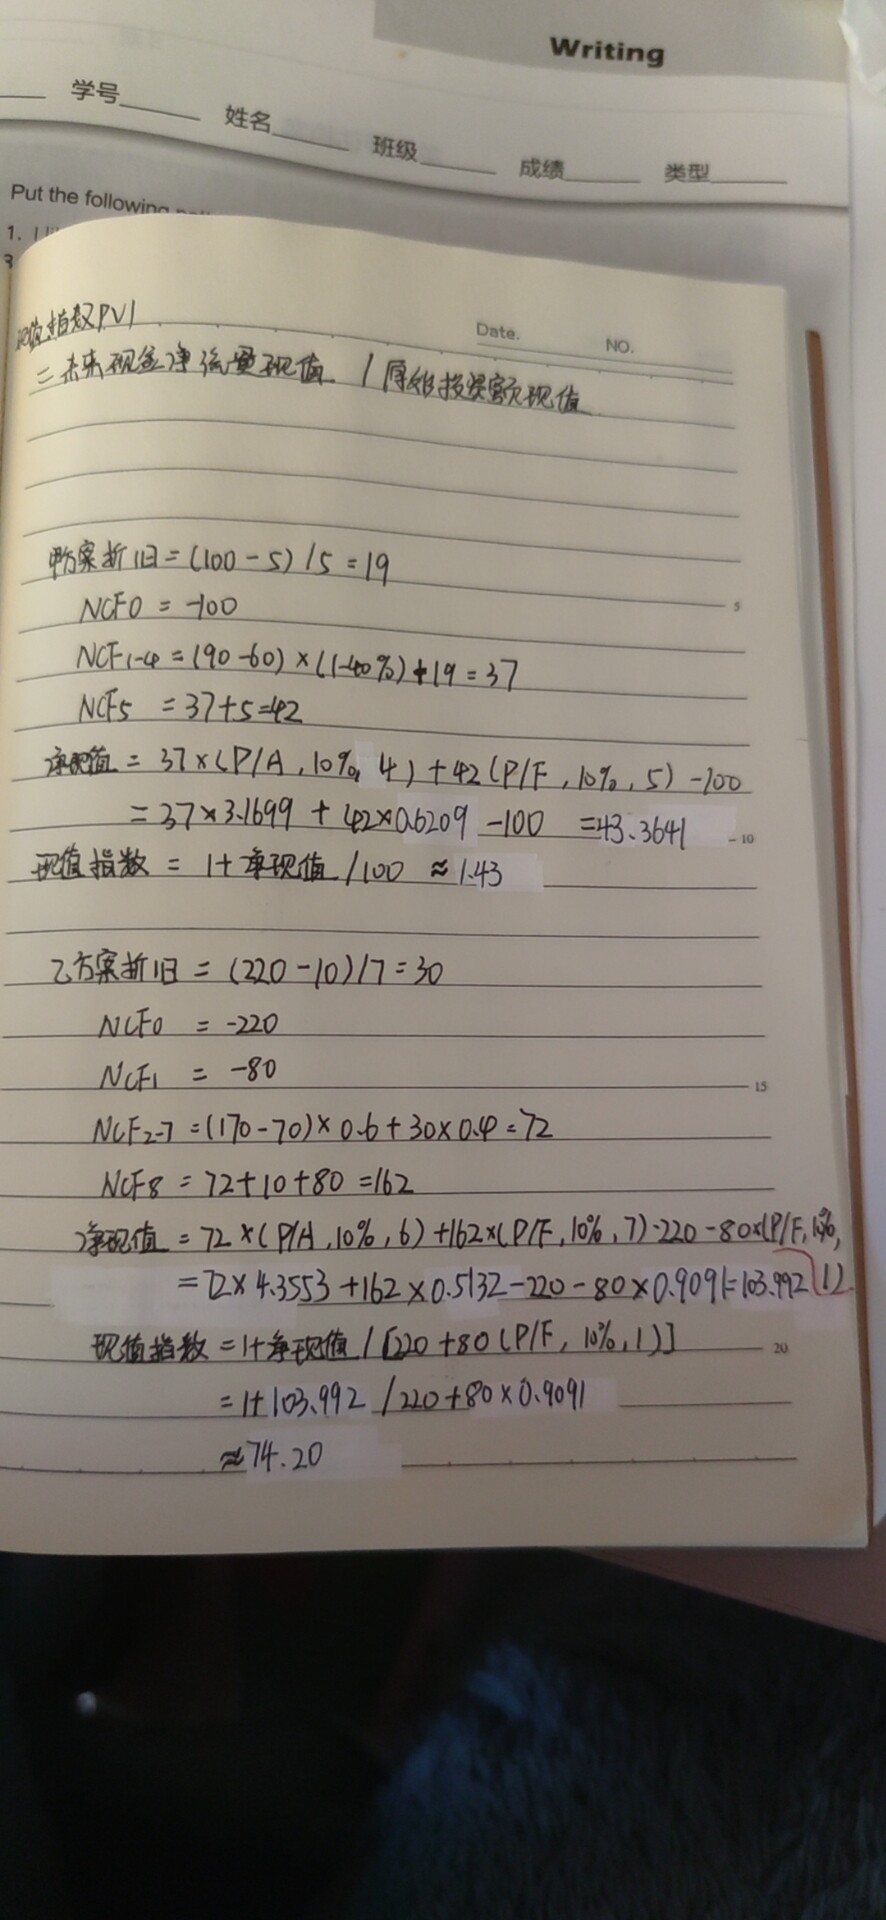 Writing
学号
姓名
班级
成绩
类型
Put the following
1.
3
现值指数PVI
Date.
NO.
=未来现金净流量现值 / 原始投资额现值
甲方案折旧=(100-5)/5=19
5
NCF0 = -100
NCF1-4=(90-60)×(1-40%)+19=37
NCF5 =37+5=42
净现值=37×(P/A,10%,4)+42(P/F,10%,5)-100
=37×3.1699+42×0.6209-100 =43.3641
10
现值指数= 1+净现值/100 ≈1.43
乙方案折旧=(220-10)/7=30
NCF0 = -220
NCF1 = -80
15
NCF2-7=(170-70)×0.6+30×0.4=72
NCF8 =72+10+80=162
净现值=72×(P/A,10%,6)+162×(P/F,10%,7)-220-80×(P/F,10%,
=72×4.3553+162×0.5132-220-80×0.9091=103.992 1)
现值指数=1+净现值/[220+80(P/F,10%,1)]
20
=1+103.992/220+80×0.9091
≈74.20